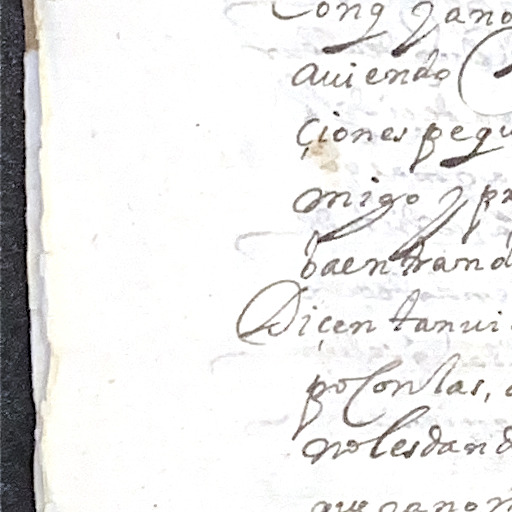 Conq y ano
aviendo
çiones pequ
migo y pr
ba entrand
Diçen tan vi
po Con las,
no les dand
que ya no